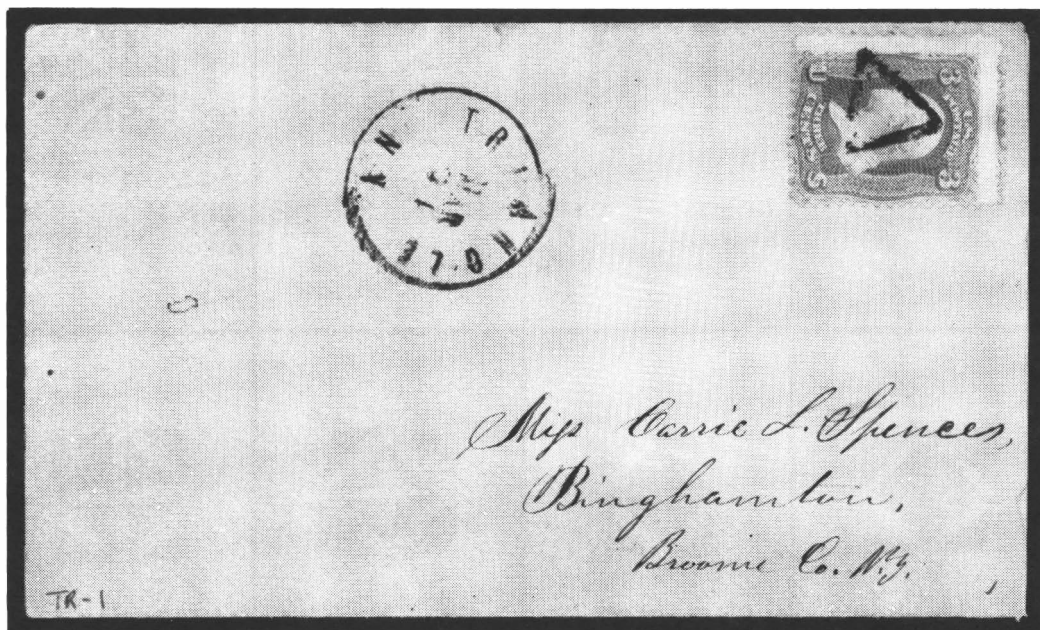 TRIANGLE N Y
U 3
THREE CENTS
S 3
Miss Carrie L. Spencer,
Binghamton,
Broome Co. N.Y.
TR-1